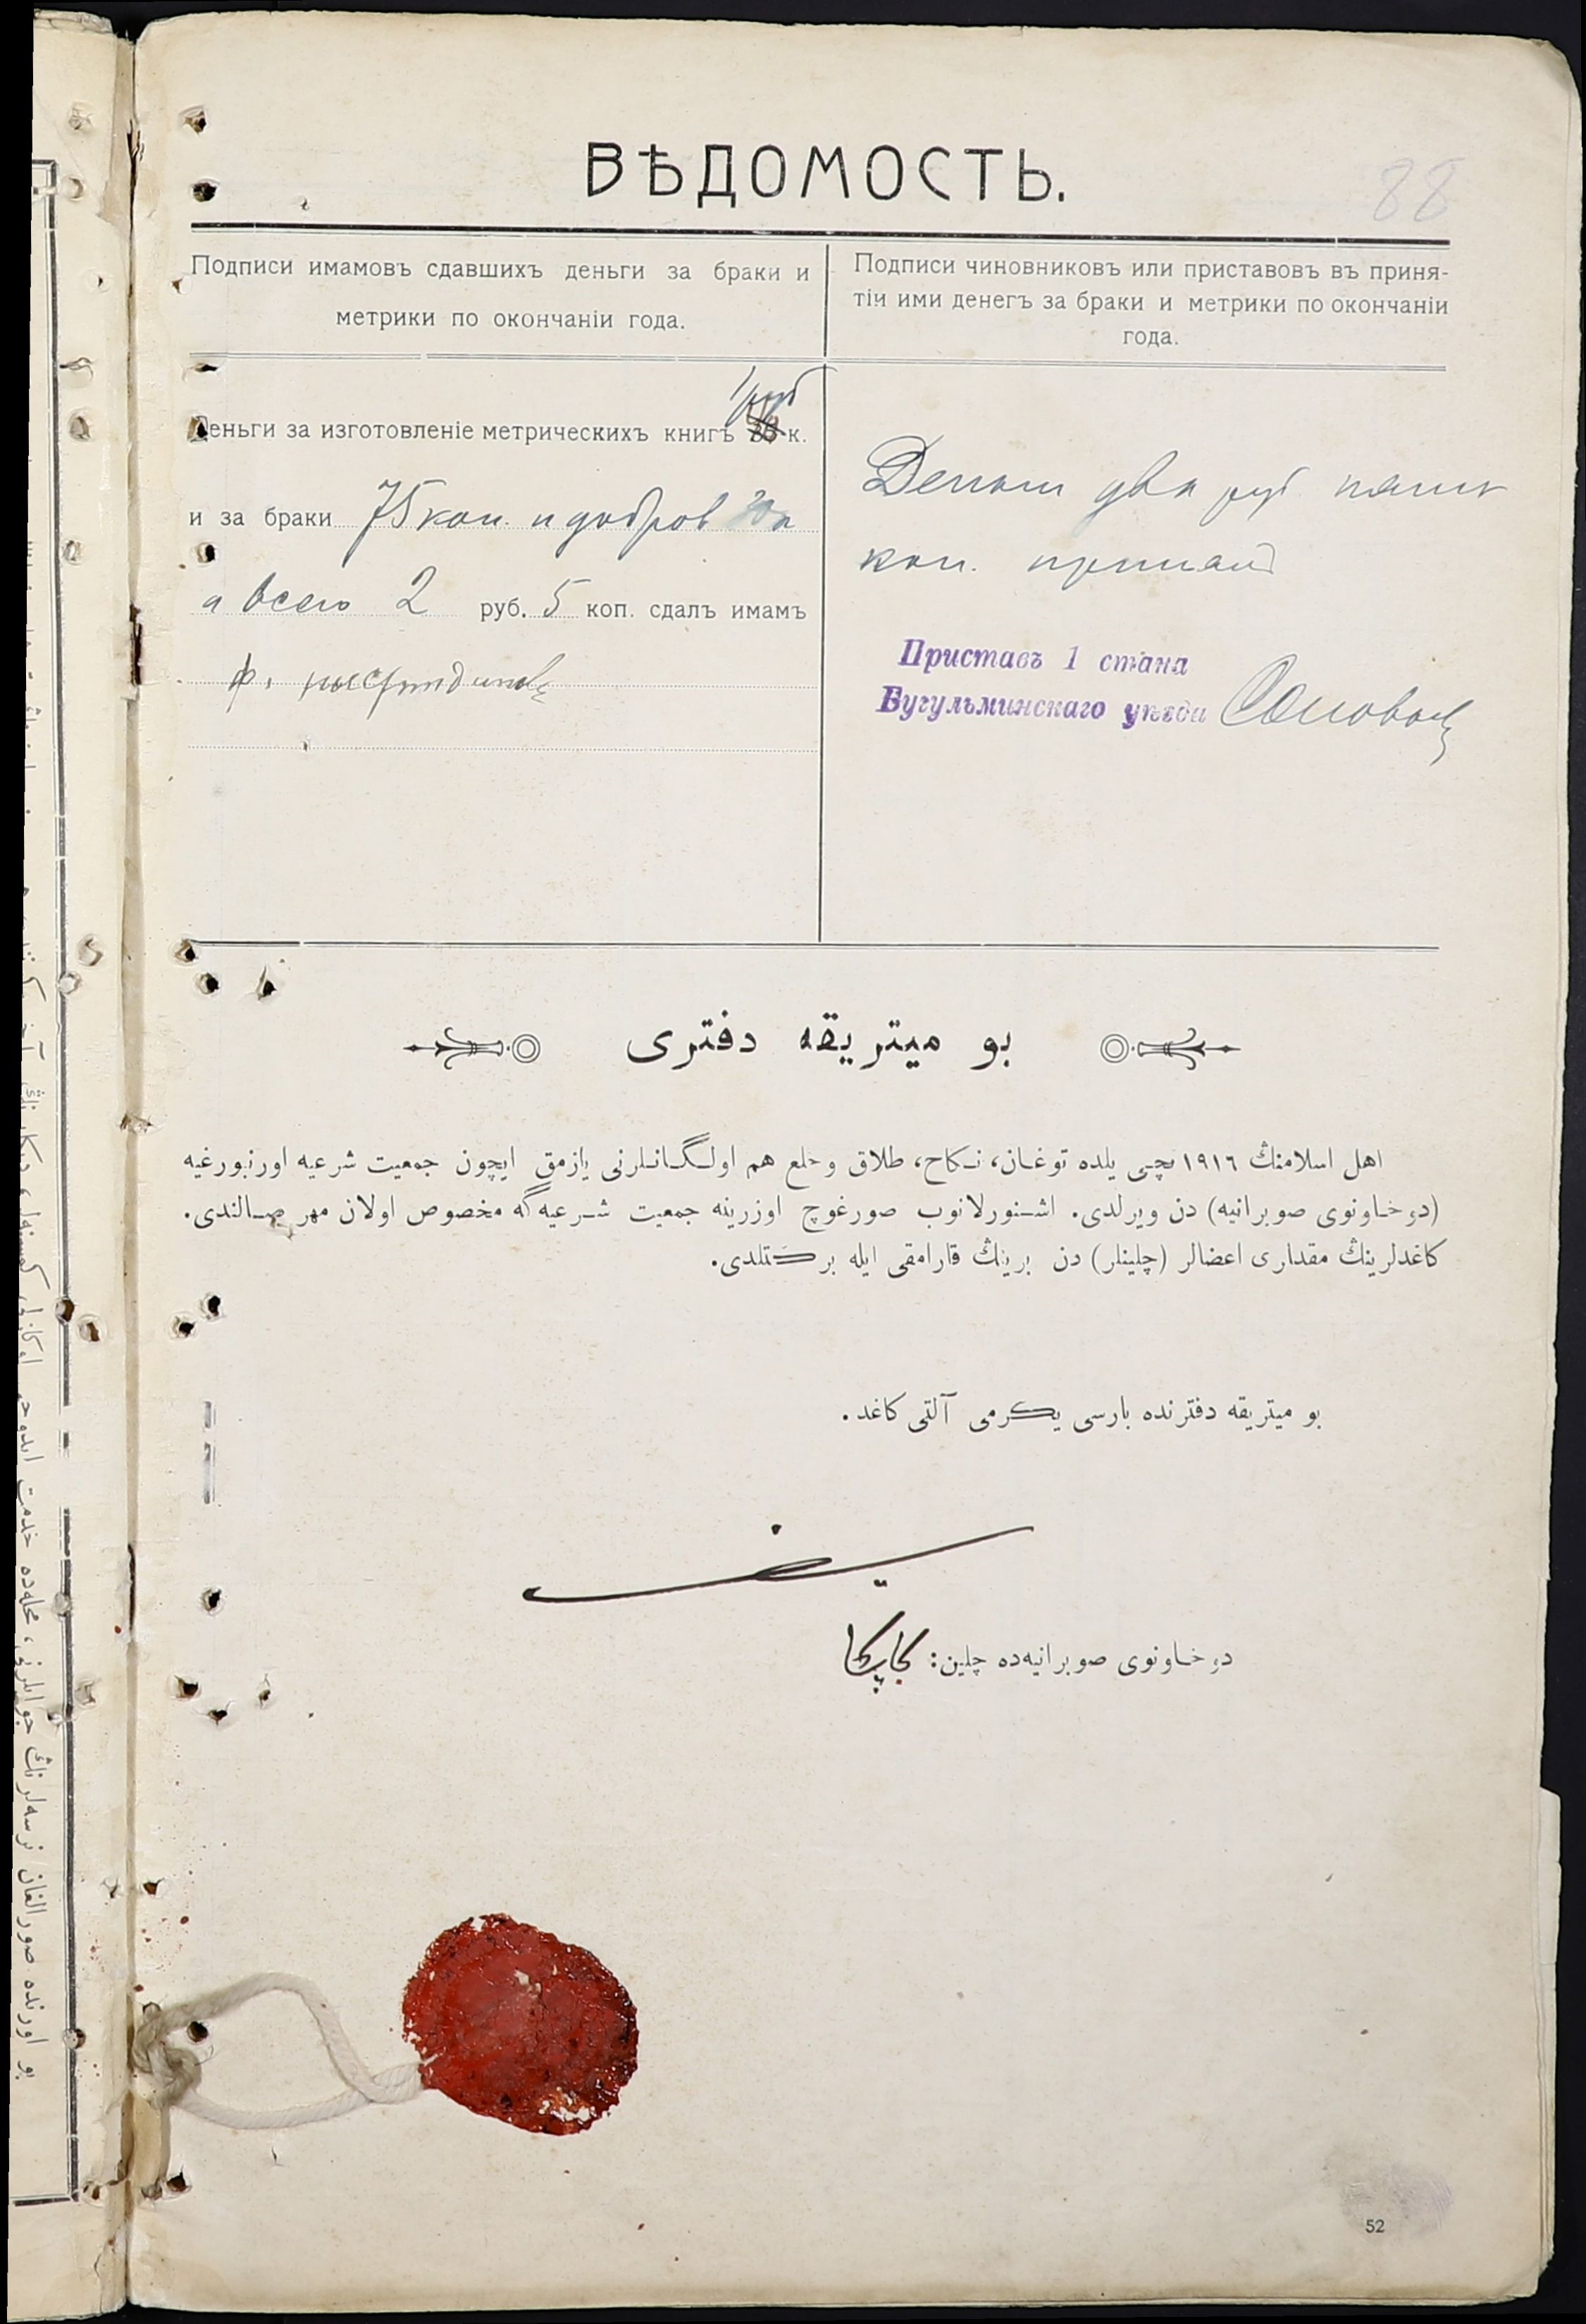 88
ВѢДОМОСТЬ.
Подписи имамовъ сдавшихъ деньги за браки и
метрики по окончаніи года.
Подписи чиновниковъ или приставовъ въ приня-
тіи ими денегъ за браки и метрики по окончаніи
года.
1 руб
Деньги за изготовленіе метрическихъ книгъ к.
и за браки 75 коп. и
а всего 2 руб. 5 коп. сдалъ имамъ
Ф.
Деньги два руб пять
коп. принял
Приставъ 1 стана
Бугульминскаго уѣзда
بو ميتريقه دفترى
اهل اسلامنڭ ١٩١٦ نچى يلده توغان، نكاح، طلاق وخلع هم اولگانلرنى يازمق ايچون جمعيت شرعيه اورنبورغيه
(دوخاونوى صوبرانيه) دن ويرلدى. اشنورلانوب صورغوچ اوزرينه جمعيت شرعيه‌گه مخصوص اولان مهر صالندى.
كاغدلرينڭ مقدارى اعضالر (چلينلر) دن برينڭ قارامقى ايله بركتلدى.
بو ميتريقه دفترنده بارسى يكرمى آلتى كاغد.
دوخاونوى صوبرانيه‌ده چلين:
52